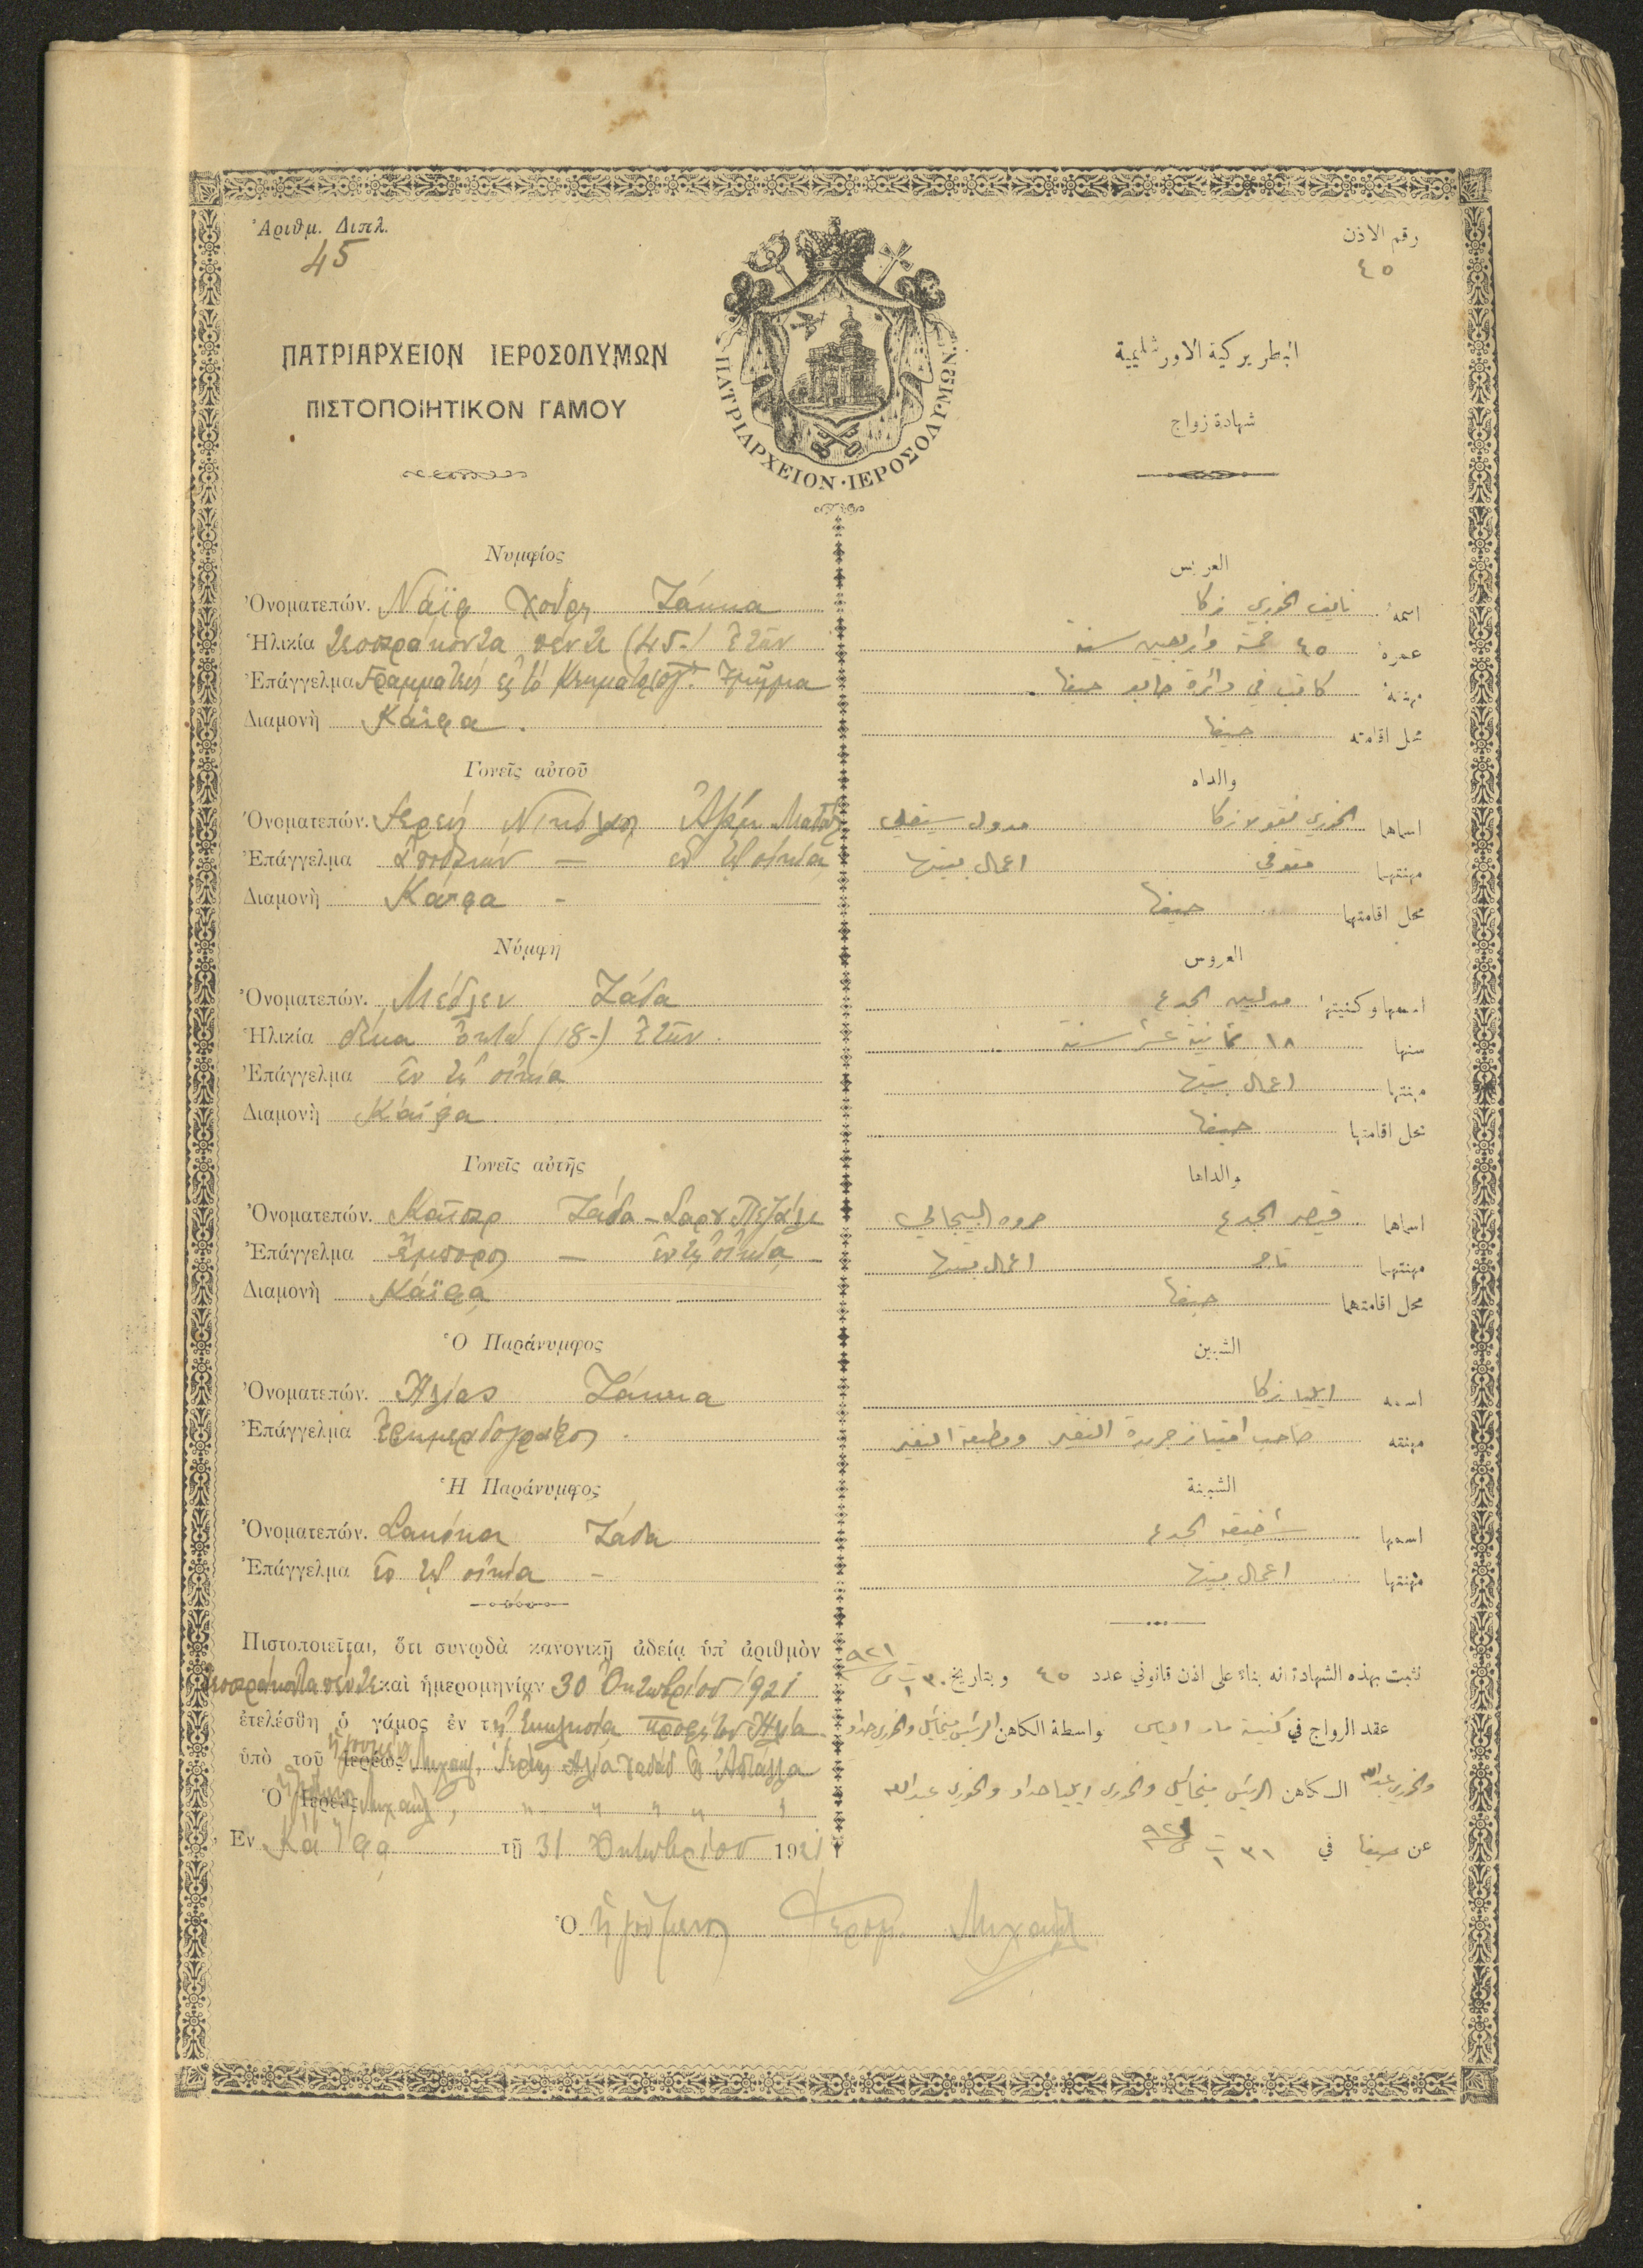 Ἀριθμ. Διπλ.
45
رقم الاذن
٤٥
ΠΑΤΡΙΑΡΧΕΙΟΝ ΙΕΡΟΣΟΛΥΜΩΝ
ΠΙΣΤΟΠΟΙΗΤΙΚΟΝ ΓΑΜΟΥ
ΠΑΤΡΙΑΡΧΕΙΟΝ·ΙΕΡΟΣΟΛΥΜΩΝ
البطريركية الاورشليمية
شهادة زواج
Νυμφίος
Ὀνοματεπών. Νάϊφ Χούρη Ζάκκα
Ἡλικία τεσσαράκοντα πέντε (45-) ἐτῶν
Ἐπάγγελμα Γραμματεὺς Τμῆμα
Διαμονὴ Κάϊφα.
Γονεῖς αὐτοῦ
Ὀνοματεπών. Ἱερεὺς Νικόλαος
Ἐπάγγελμα — ἐν τῇ οἰκίᾳ
Διαμονὴ Κάϊφα -
Νύμφη
Ὀνοματεπών. Μέδλεν Ζάδα
Ἡλικία δέκα ὀκτώ (18-) ἐτῶν.
Ἐπάγγελμα ἐν τῇ οἰκίᾳ
Διαμονὴ Κάϊφα
Γονεῖς αὐτῆς
Ὀνοματεπών. Καΐσαρ Ζάδα -
Ἐπάγγελμα Ἔμπορος — ἐν τῇ οἰκίᾳ
Διαμονὴ Κάϊφα
Ὁ Παράνυμφος
Ὀνοματεπών. Ἠλίας Ζάκκα
Ἐπάγγελμα Ἐφημεριδογράφος.
Ἡ Παράνυμφος
Ὀνοματεπών. Ζάδα
Ἐπάγγελμα ἐν τῇ οἰκίᾳ -
Πιστοποιεῖται, ὅτι συνῳδὰ κανονικῇ ἀδείᾳ ὑπ' ἀριθμὸν
τεσσαράκοντα πέντε καὶ ἡμερομηνίαν 30 Ὀκτωβρίου 1921
ἐτελέσθη ὁ γάμος ἐν τῇ Ἐκκλησίᾳ Προφήτου Ἠλία
ὑπὸ τοῦ ἱερέως Μιχαήλ, Ἠλία Χαδάδ
Ὁ Ἱερεὺς Μιχαήλ, " " " "
Ἐν Κάϊφᾳ τῇ 31 Ὀκτωβρίου 1921
العريس
اسمه نايف الخوري زكا
عمره ٤٥ خمسة واربعين سنة
مهنته كاتب في دائرة حيفا
محل اقامته حيفا
والداه
اسماهما الخوري نقولا زكا
مهنتهما متوفي اعمال بيتها
محل اقامتهما حيفا
العروس
اسمها وكنيتها مدلين الجدع
سنها ١٨ ثمانية عشر سنة
مهنتها اعمال بيتها
محل اقامتها حيفا
والداها
اسماهما قيصر الجدع
مهنتهما تاجر اعمال بيتها
محل اقامتهما حيفا
الشبين
اسمه ايليا زكا
مهنته صاحب امتياز جريدة النفير ومطبعة النفير
الشبينة
اسمها شفيقه الجدع
مهنتها اعمال بيتها
نثبت بهذه الشهادة انه بناء على اذن قانوني عدد ٤٥ وبتاريخ ٣٠ ت ١ ٩٢١
عقد الزواج في كنيسة مار الياس بواسطة الكاهن الريس ميخائيل والخوري حداد
والخوري عبدالله الكاهن الريس ميخائيل والخوري ايليا حداد والخوري عبدالله
عن حيفا في ٣١ ت ١ ٩٢١
Ὁ ἡγούμενος Μιχαήλ